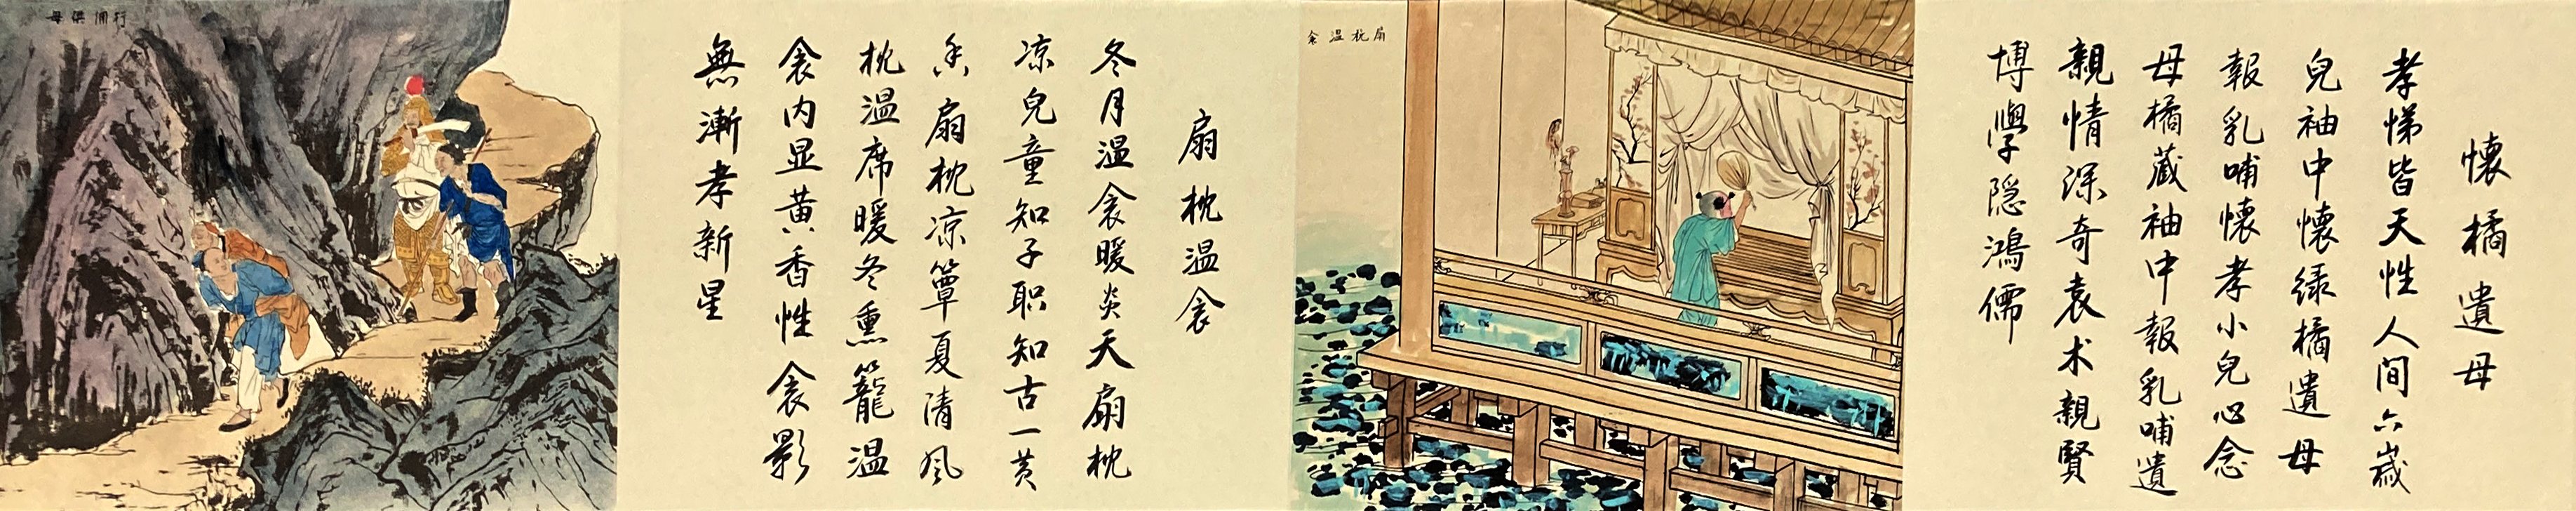 懷橘遺母
孝悌皆天性人间六歲
兒袖中懷绿橘遺母
報乳哺懷孝小兒心念
母橘藏袖中報乳哺遺
親情深奇袁术親賢
博學隐鴻儒
扇枕温衾
扇枕温衾
冬月温衾暖炎天扇枕
凉兒童知子职知古一黄
香扇枕凉簟夏清风
枕温席暖冬熏籠温
衾内显黄香性衾影
無漸孝新星
行傭供母